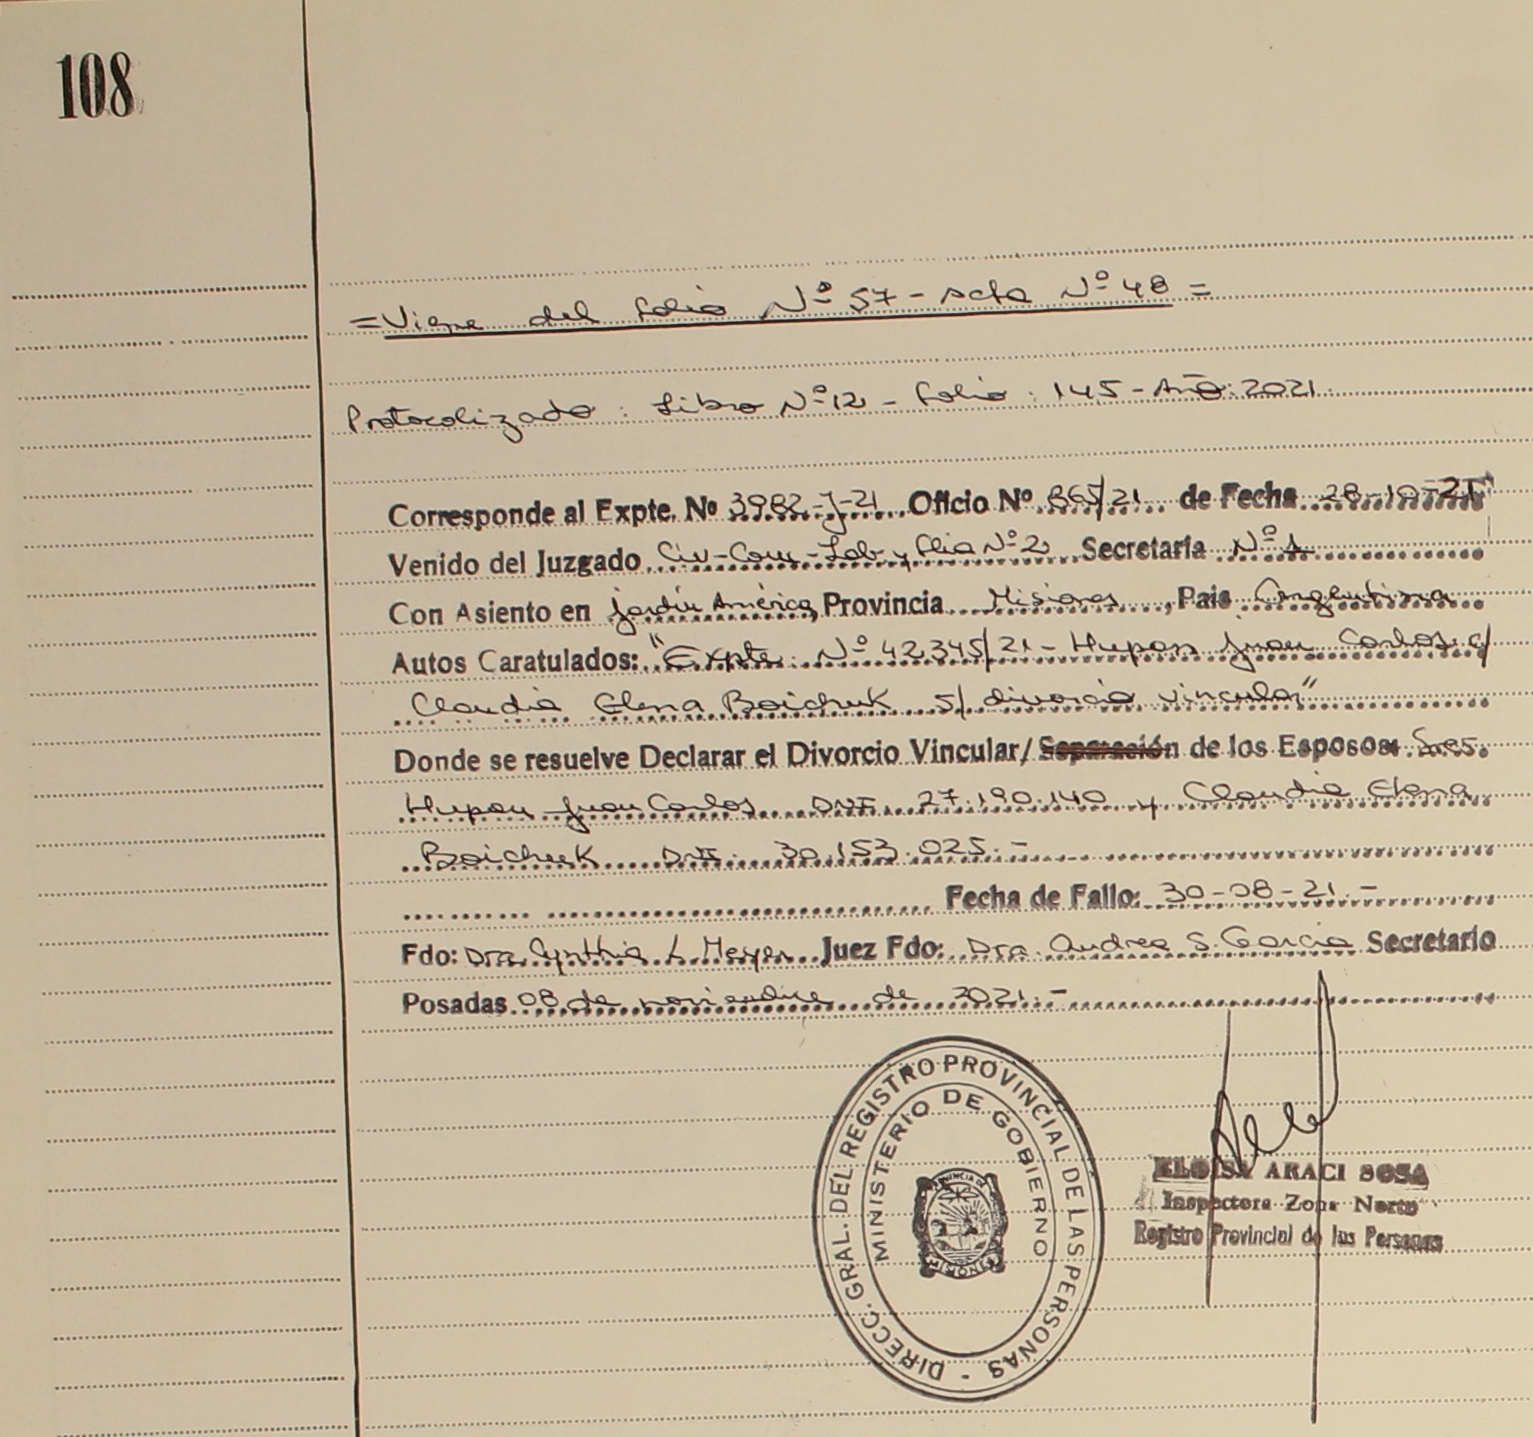 108
= Viene del folio Nº 57 - Acta Nº 48 =
Protocolizado: Libro Nº 12 - folio: 145 - Año: 2021.
Corresponde al Expte. Nº 3982-J-21 Oficio Nº 865/21 de Fecha 28-10-21
Venido del Juzgado Civ-Com-Lab y Flia Nº 2 Secretaría Nº 1
Con Asiento en Jardín América, Provincia Misiones, País Argentina
Autos Caratulados: "Expte. Nº 42345/21 - Hupan Juan Carlos c/
Claudia Elena Boichuk s/ divorcio vincular"
Donde se resuelve Declarar el Divorcio Vincular/ Separación de los Esposos: Sres.
Hupan Juan Carlos DNI. 27.190.140 y Claudia Elena
Boichuk DNI. 30.153.025.-
Fecha de Fallo: 30-08-21.-
Fdo: Dra. Cynthia L. Meyer Juez Fdo: Dra. Andrea S. García Secretario
Posadas 08 de noviembre de 2021.-
DIRECC. GRAL. DEL REGISTRO PROVINCIAL DE LAS PERSONAS -
MINISTERIO DE GOBIERNO
PROVINCIA DE
MISIONES
ELOISA ARACI SOSA
Inspectora Zona Norte
Registro Provincial de las Personas